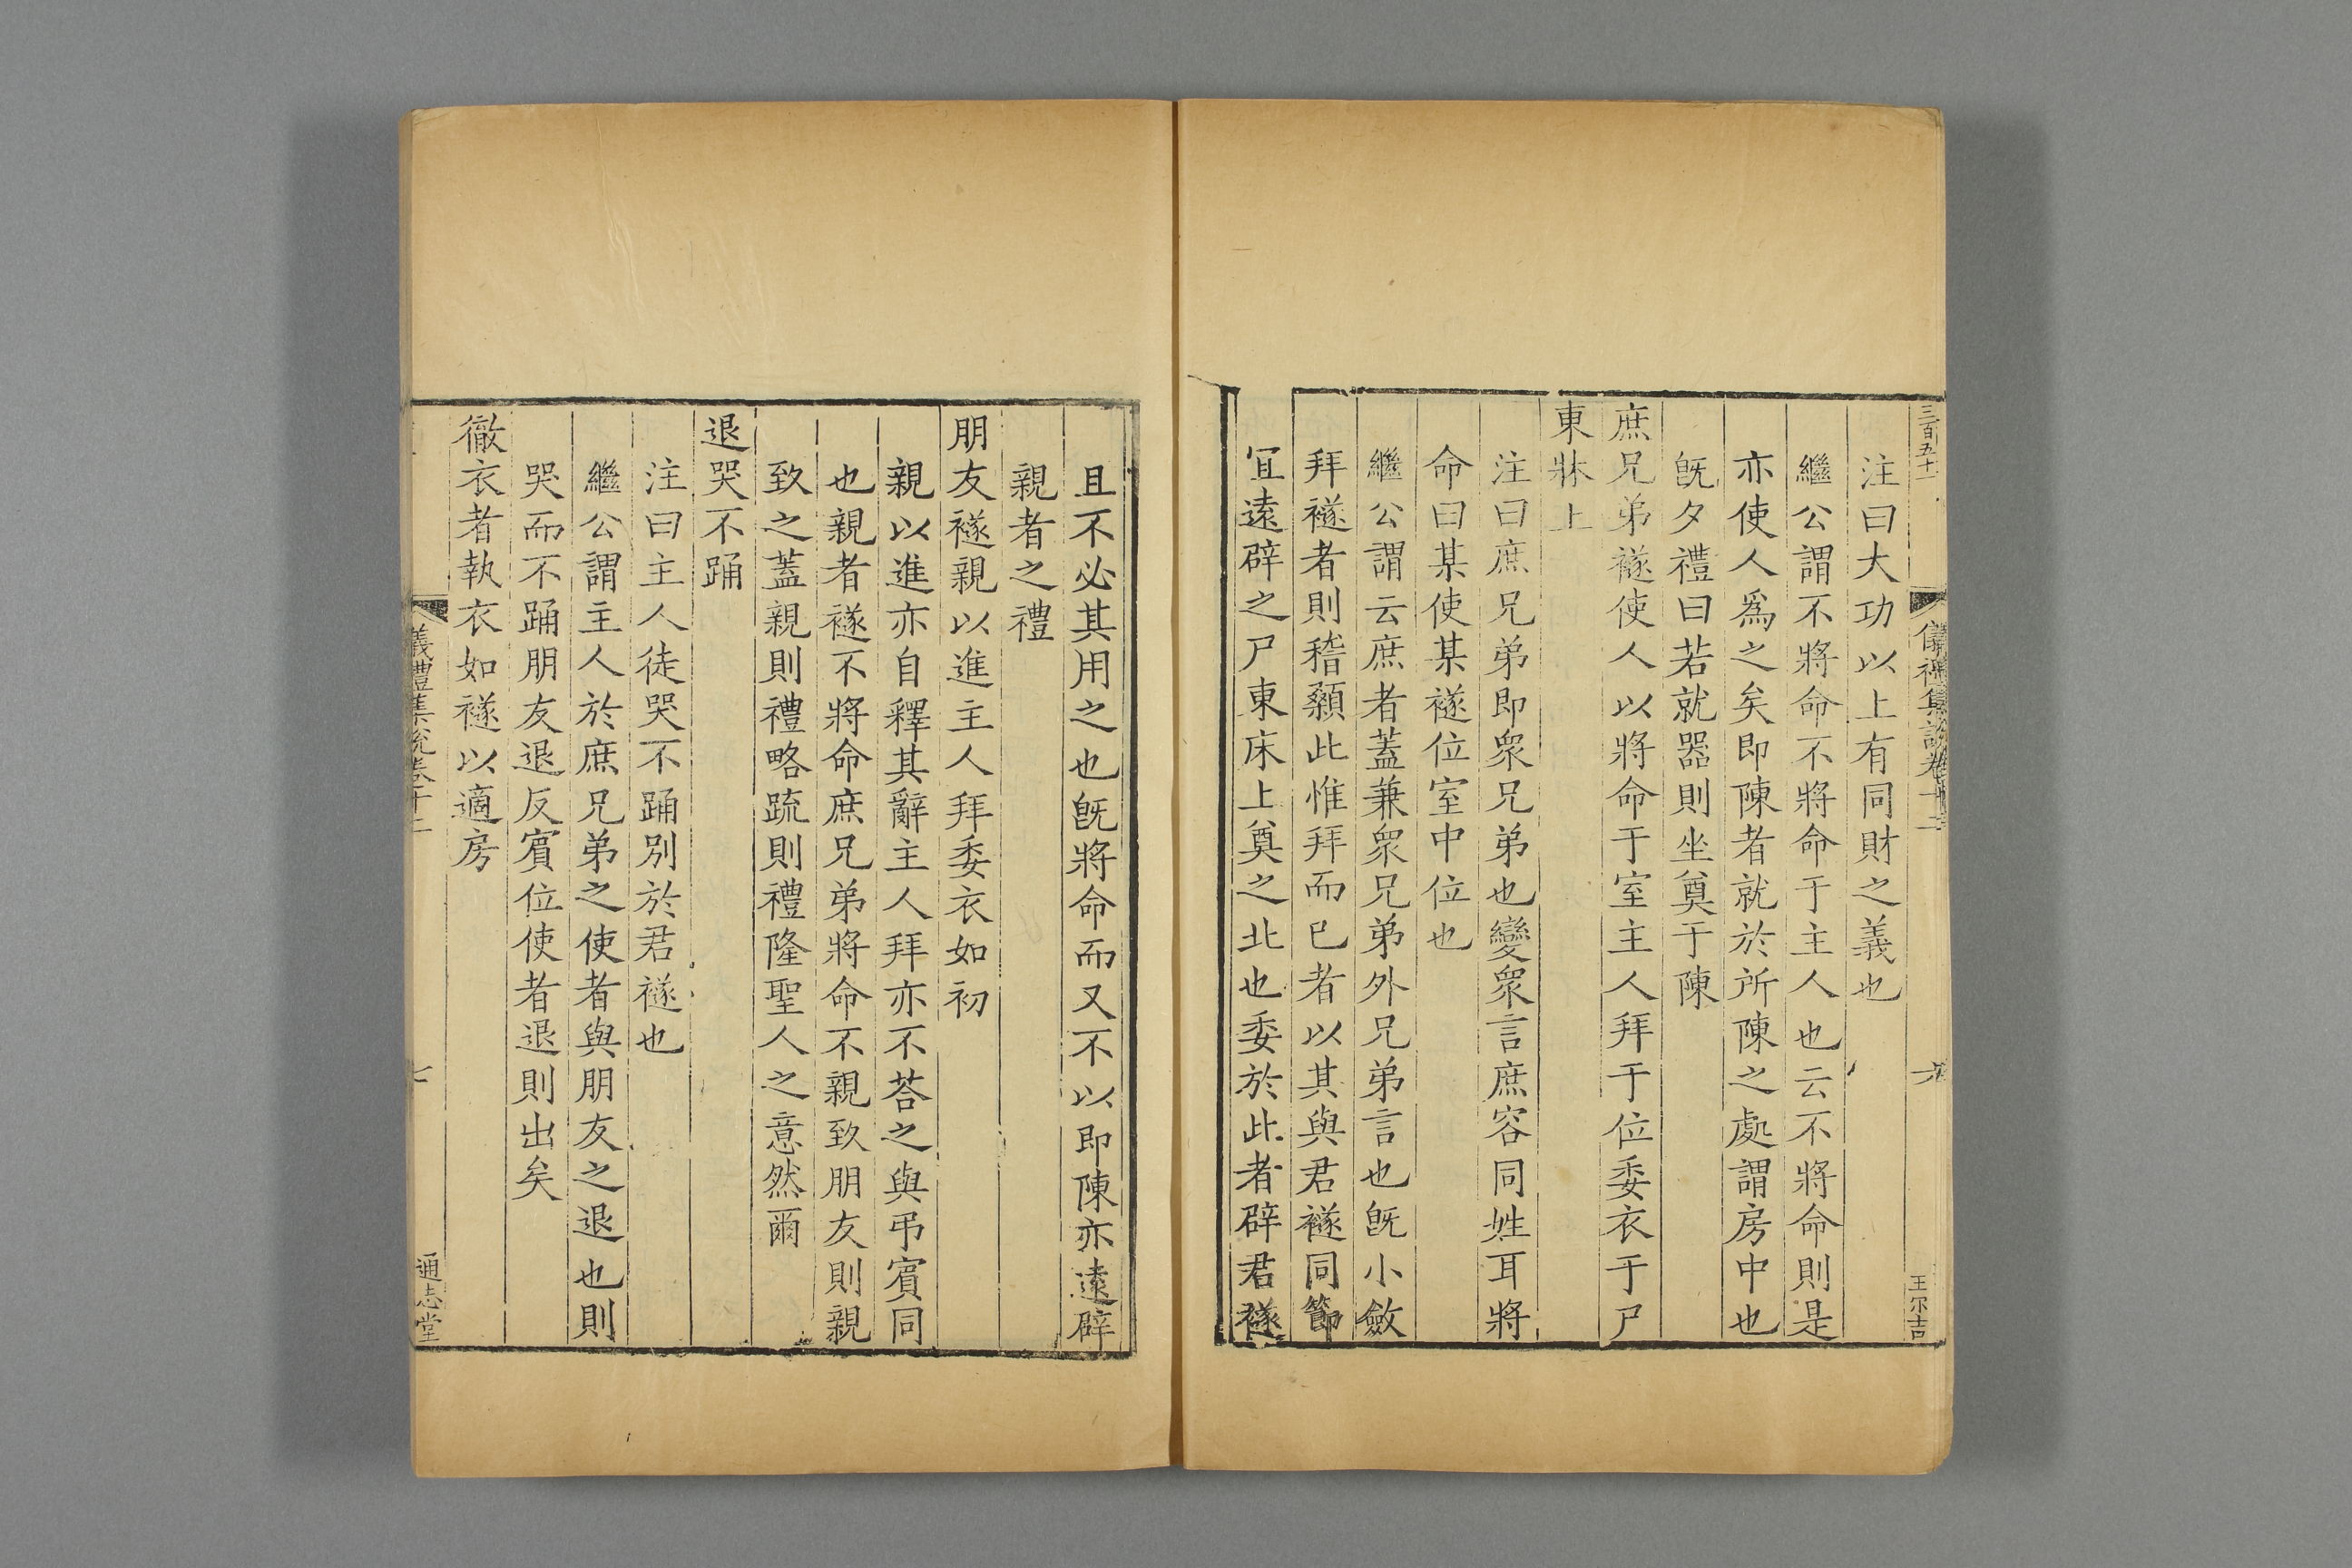 三百五十一
儀禮集說卷十二
六
王尔吉
注曰大功以上有同財之義也
繼公謂不將命不將命于主人也云不將命則是
亦使人爲之矣即陳者就於所陳之處謂房中也
旣夕禮曰若就器則坐奠于陳
庶兄弟襚使人以將命于室主人拜于位委衣于尸
東牀上
注曰庶兄弟即衆兄弟也變衆言庶容同姓耳將
命曰某使某襚位室中位也
繼公謂云庶者蓋兼衆兄弟外兄弟言也旣小斂
拜襚者則稽顙此惟拜而已者以其與君襚同節
冝遠辟之尸東床上奠之北也委於此者辟君襚
且不必其用之也旣將命而又不以即陳亦遠辟
親者之禮
朋友襚親以進主人拜委衣如初
親以進亦自釋其辭主人拜亦不荅之與弔賔同
也親者襚不將命庶兄弟將命不親致朋友則親
致之蓋親則禮略䟽則禮隆聖人之意然爾
退哭不踊
注曰主人徒哭不踊別於君襚也
繼公謂主人於庶兄弟之使者與朋友之退也則
哭而不踊朋友退反賔位使者退則出矣
徹衣者執衣如襚以適房
儀禮集說卷十二
七
通志堂